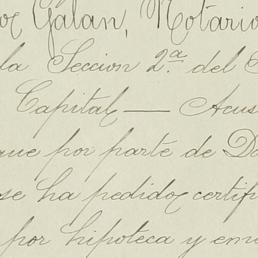 Galan, Notario
la Seccion 2ª. del
Capital — Acus
que por parte de Do
se ha pedido certif
por hipoteca y em